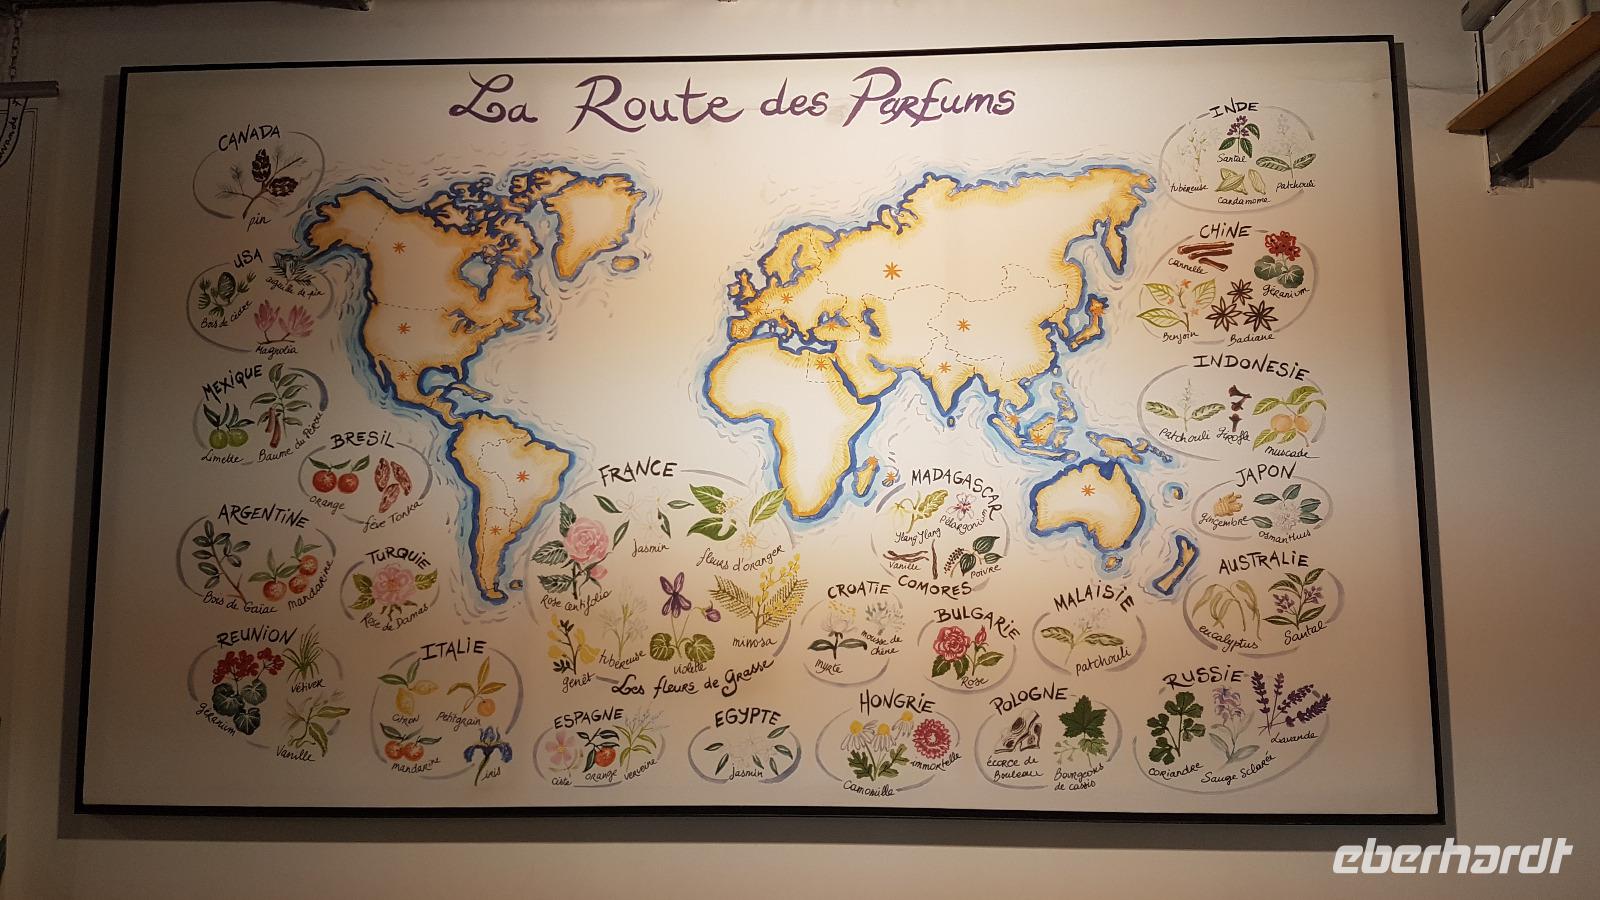 La Route des Parfums
CANADA
pin
USA
Bois de cèdre
aiguille de pin
Magnolia
MEXIQUE
Limette
Baume du Pérou
BRESIL
orange
fève Tonka
ARGENTINE
Bois de Gaïac
mandarine
TURQUIE
Rose de Damas
REUNION
géranium
Vétiver
Vanille
ITALIE
citron
Petitgrain
mandarine
iris
FRANCE
Rose centifolia
Jasmin
fleurs d'oranger
genêt
tubéreuse
violette
mimosa
Les fleurs de Grasse
ESPAGNE
ciste
orange
verveine
EGYPTE
Jasmin
MADAGASCAR
Ylang Ylang
Pélargonium
Vanille
poivre
COMORES
CROATIE
myrte
mousse de
chêne
BULGARIE
Rose
MALAISIE
patchouli
HONGRIE
Camomille
immortelle
POLOGNE
écorce de
Bouleau
Bourgeons
de cassis
INDE
Santal
tubéreuse
patchouli
Cardamome
CHINE
Cannelle
géranium
Benjoin
Badiane
INDONESIE
Patchouli
muscade
JAPON
gingembre
osmanthus
AUSTRALIE
eucalyptus
Santal
RUSSIE
coriandre
Sauge Sclarée
Lavande
eberhardt